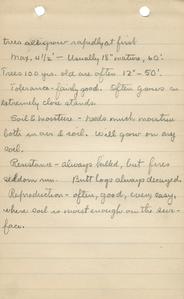 trees all grow rapidly at first
Max, 4½' - Usually 18" mature, 60'.
Trees 100 yrs. old are often 12" - 50'.
Tolerance - fairly good. Often grows in
extremely close stands.
Soil & moisture - Needs much moisture
both in air & soil. Will grow on any
soil.
Resistance - always killed, but fires
seldom run. Butt logs always decayed.
Reproduction - often, good, every easy,
where soil is moist enough on the sur-
face.